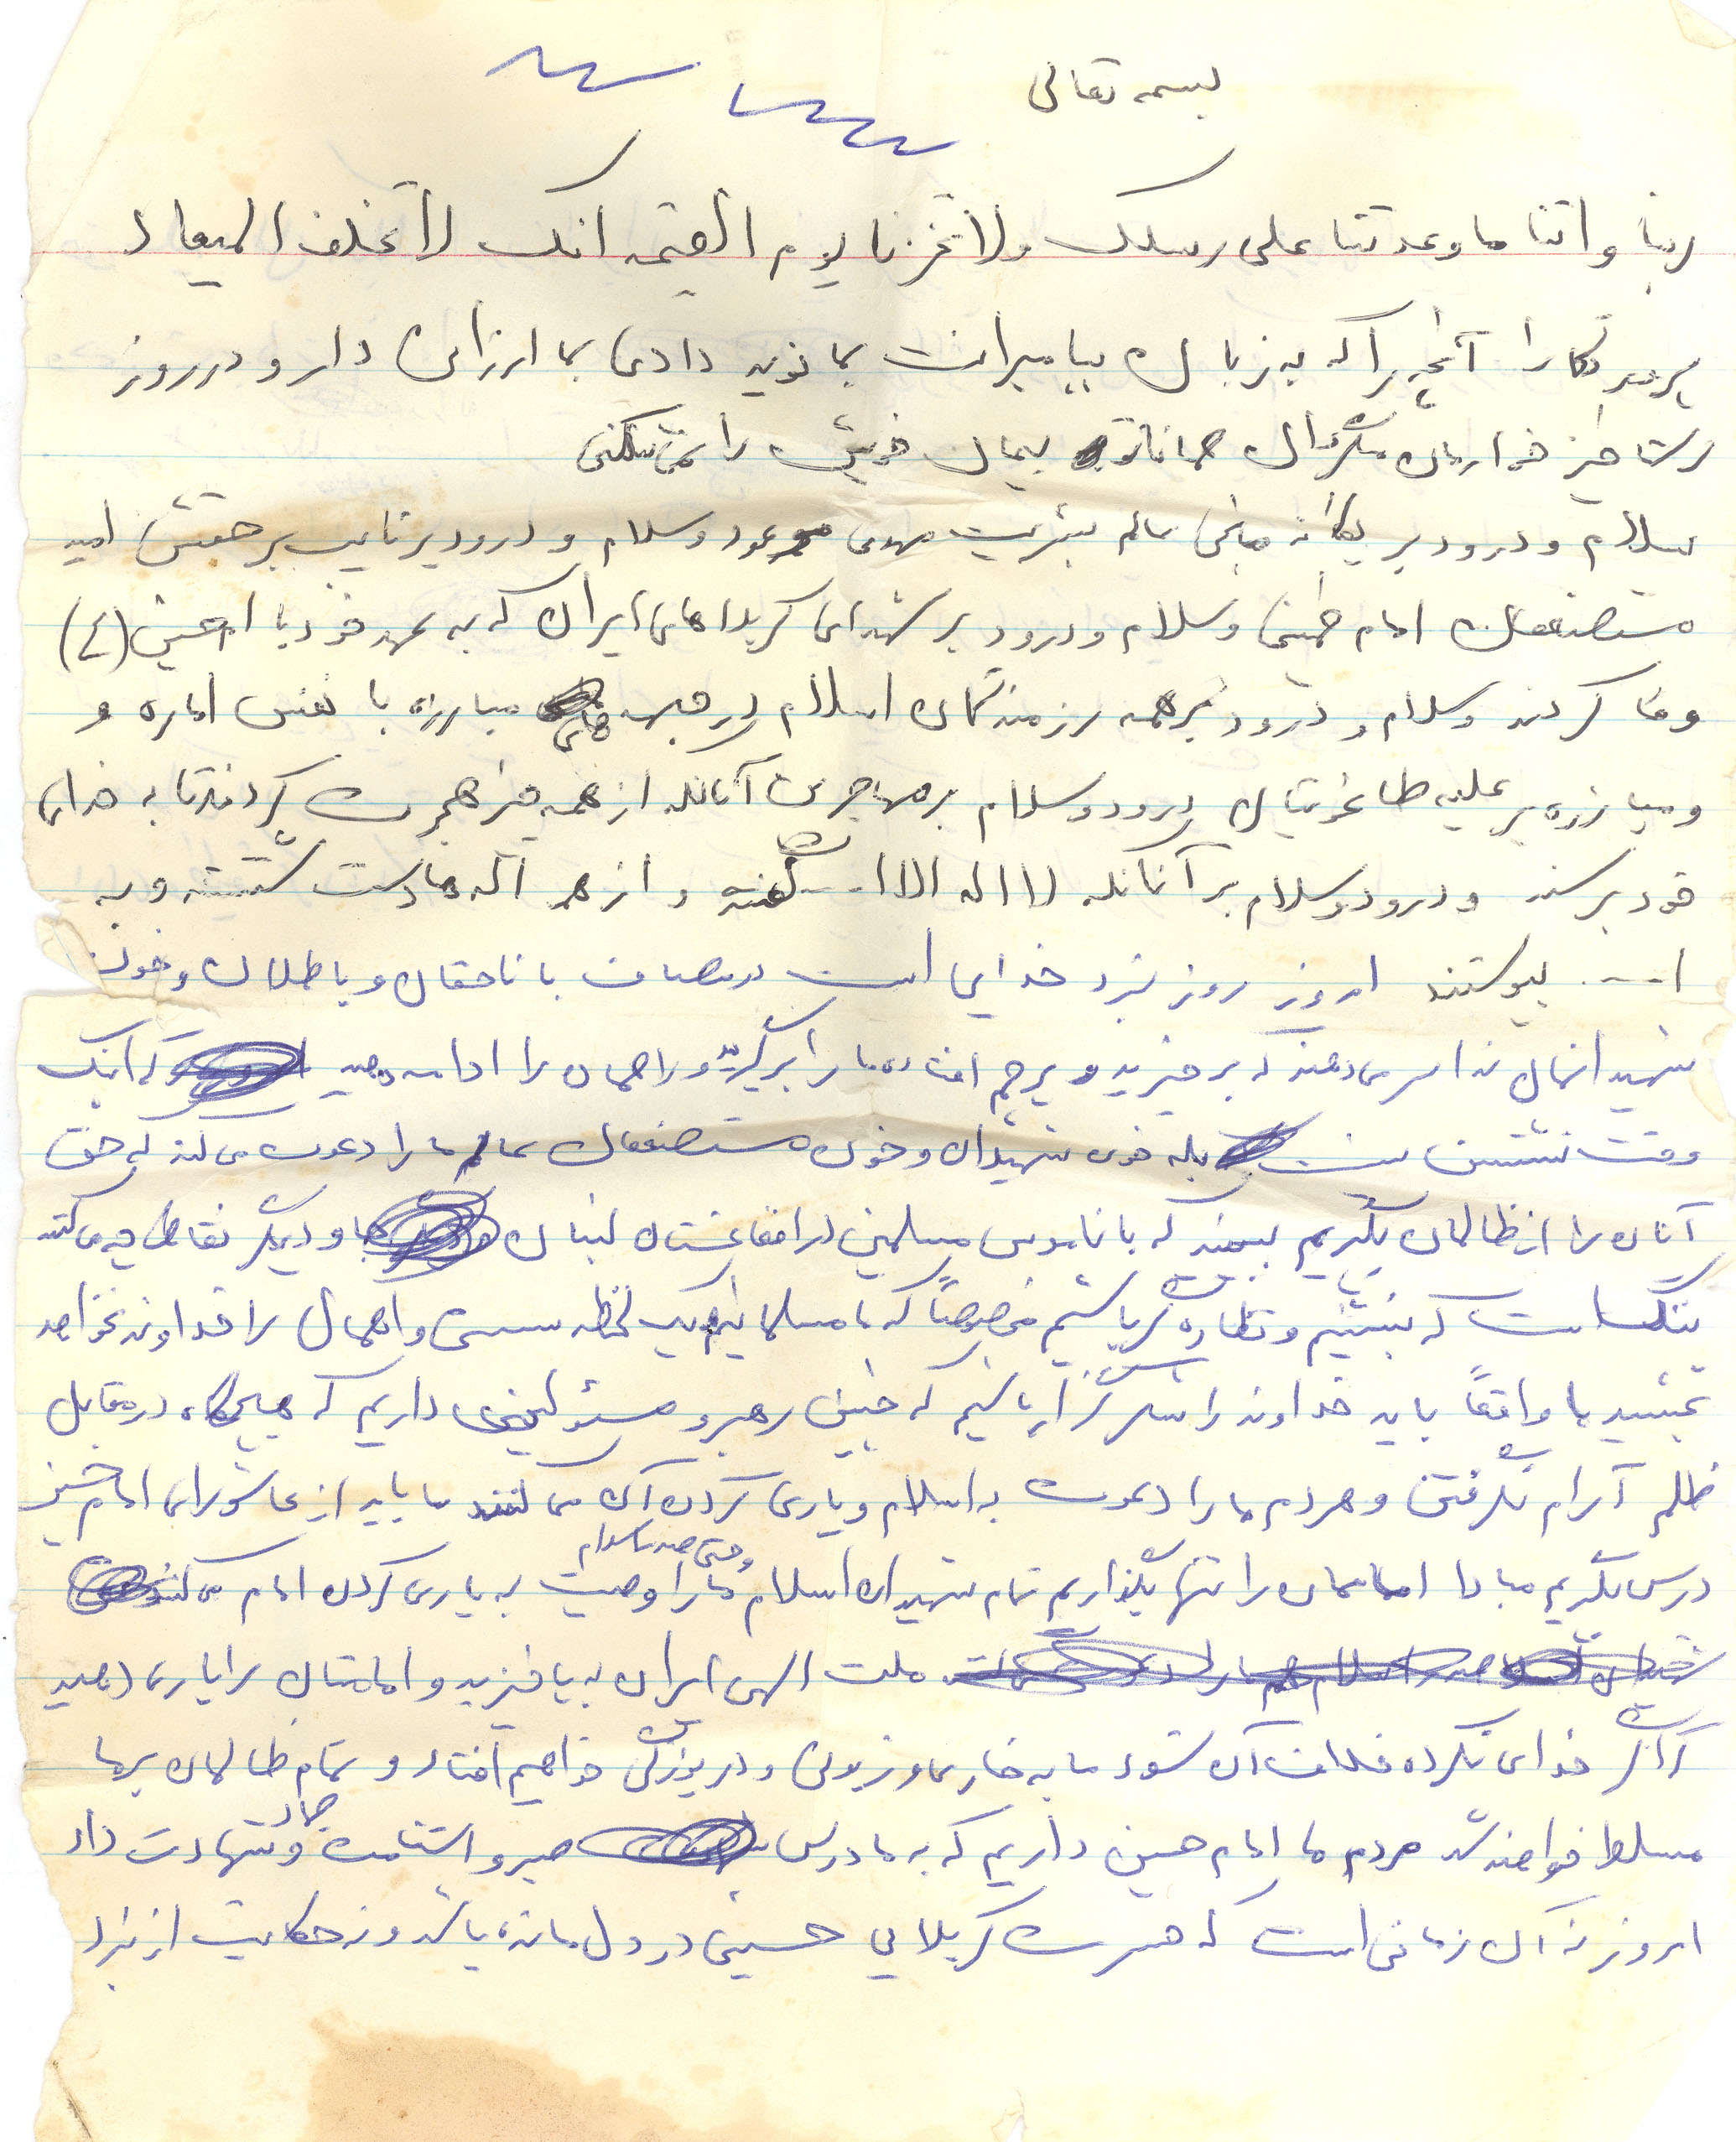 بسمه تعالی
ربنا و اتنا ما وعدتنا علی رسلک ولا تخزنا یوم القیمه انک لا تخلف المیعاد
پروردگارا آنچه را که به زبان پیامبرانت بما نوید دادی بما ارزانی دار و در روز
رستاخیز خوارمان مگردان همانا تو پیمان خویش را نمی‌شکنی
سلام و درود بر یگانه منجی عالم بشریت مهدی موعود و سلام و درود بر نایب بر حقش امید
مستضعفان امام خمینی و سلام و درود بر شهدای کربلاهای ایران که به عهد خود با حسین (ع)
وفا کردند و سلام و درود بر همه رزمندگان اسلام در جبهه های مبارزه با نفس اماره و
و مبارزه بر علیه طاغوتیان درود و سلام بر مهاجرین آنانکه از همه چیز هجرت کردند تا به خدای
خود برسند و درود و سلام بر آنانکه لا اله الا ا... گفتند و از هر اله ها دست شسته و به
ا... پیوستند امروز روز نبرد خدایی است در مصاف با ناحقان و باطلان و خون
شهیدانمان ندا سر می‌دهند که برخیزید و پرچم افتاده ما را برگیرید و راهمان را ادامه دهید که اینک
وقت نشستن نیست بلکه خون شهیدان و خون مستضعفان عالم ما را دعوت می‌کند که حق
آنان را از ظالمان بگیریم ببینید که با ناموس مسلمین در افغانستان لبنان و دیگر نقاط چه می‌کنند
ننگ است که بنشینیم و نظاره گر باشیم مخصوصاً که ما مسلمانیم یک لحظه سستی و اهمال را خداوند نخواهد
بخشید ما واقعاً باید خداوند را شکرگزار باشیم که چنین رهبر و مسئولینی داریم که هیچگاه در مقابل
ظلم آرام نگرفتن و هر دم ما را دعوت به اسلام و یاری کردن آن می کنند ما باید از عاشورای امام حسین
درس بگیریم مبادا اماممان را تنها بگذاریم تمام شهیدان اسلام و حتی صدر اسلام ما را وصیت به یاری کردن امام می‌کنند
ملت الهی ایران به پا خیزید و امامتان را یاری دهید
اگر خدای نکرده خلاف آن شود ما به خاری و زبونی و دریوزگی خواهیم افتاد و تمام ظالمان بر ما
مسلط خواهند شد مردم ما امام حسین داریم که به ما درس صبر و استقامت جهاد و شهادت داد
امروز نه آن زمانی است که حسرت کربلایی حسینی در دل مانده باشد و نه حکایت از نبرد